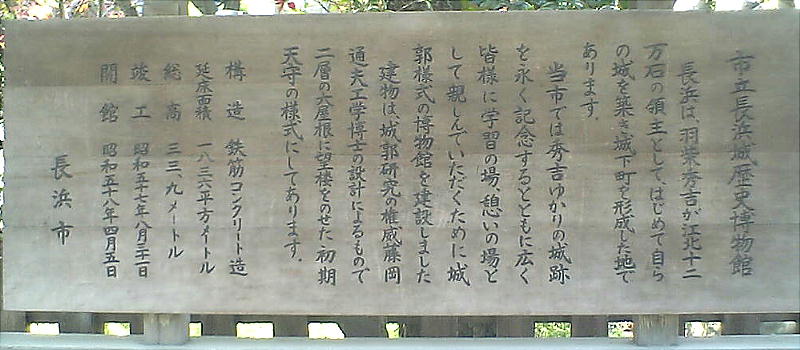 市立長浜城歴史博物館
長浜は、羽柴秀吉が江北十二
万石の領主として、はじめて自ら
の城を築き城下町を形成した地で
あります。
当市では秀吉ゆかりの城跡
を永く記念するとともに広く
皆様に学習の場、憩いの場と
して親しんでいただくために城
郭様式の博物館を建設しました
建物は、城郭研究の権威藤岡
通夫工学博士の設計によるもので
二層の大屋根に望楼をのせた初期
天守の様式にしてあります。
構造 鉄筋コンクリート造
延床面積 一八三六平方メートル
総高 三三.九メートル
竣工 昭和五十七年八月三十一日
開館 昭和五十八年四月五日
長浜市